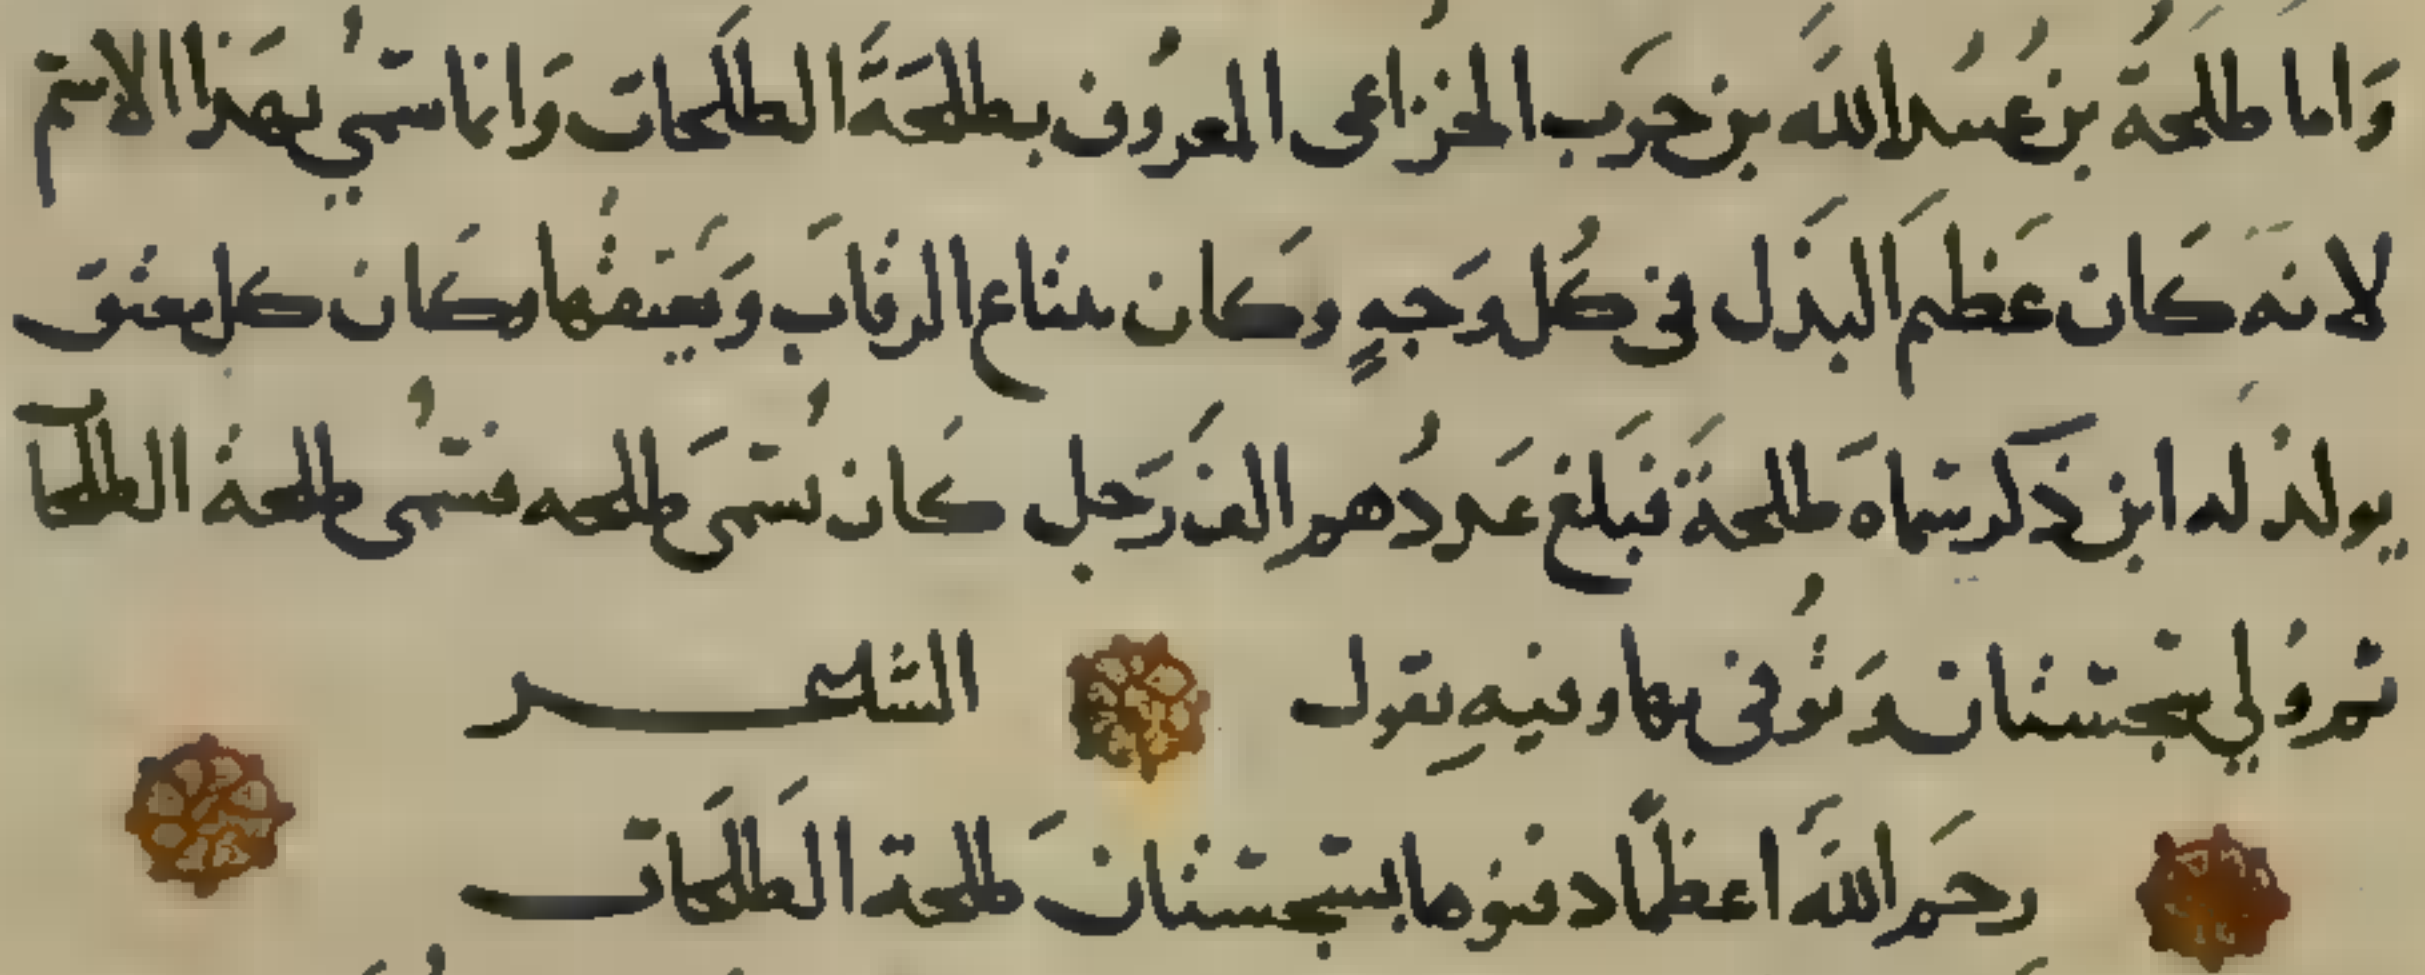 وَاما طلحةُ بن عُبيد الله بن حَرب الخزاعى المعروُف بطلحَةَ الطلَحات وَانما سُمّي بهَذا الاسم
لانه كَان عَظيمَ البذَل فى كُل وَجهٍ وكَان يبتاع الرقابَ وَيَعتقُها وكَان كل معتق
يولدُ له ابن ذَكر سَماه طلحَة فبَلغ عَددُهم الفَ رَجل كَان يُسَمَى طلحه فسُمى طلحةُ الطلحا
ثم وُلي سجستان وَتُوفى بها وفيهِ يقول الشاعر
رحَم اللهَ اعظمًا دفنوها بسجستانَ طلحة الطلَحَات